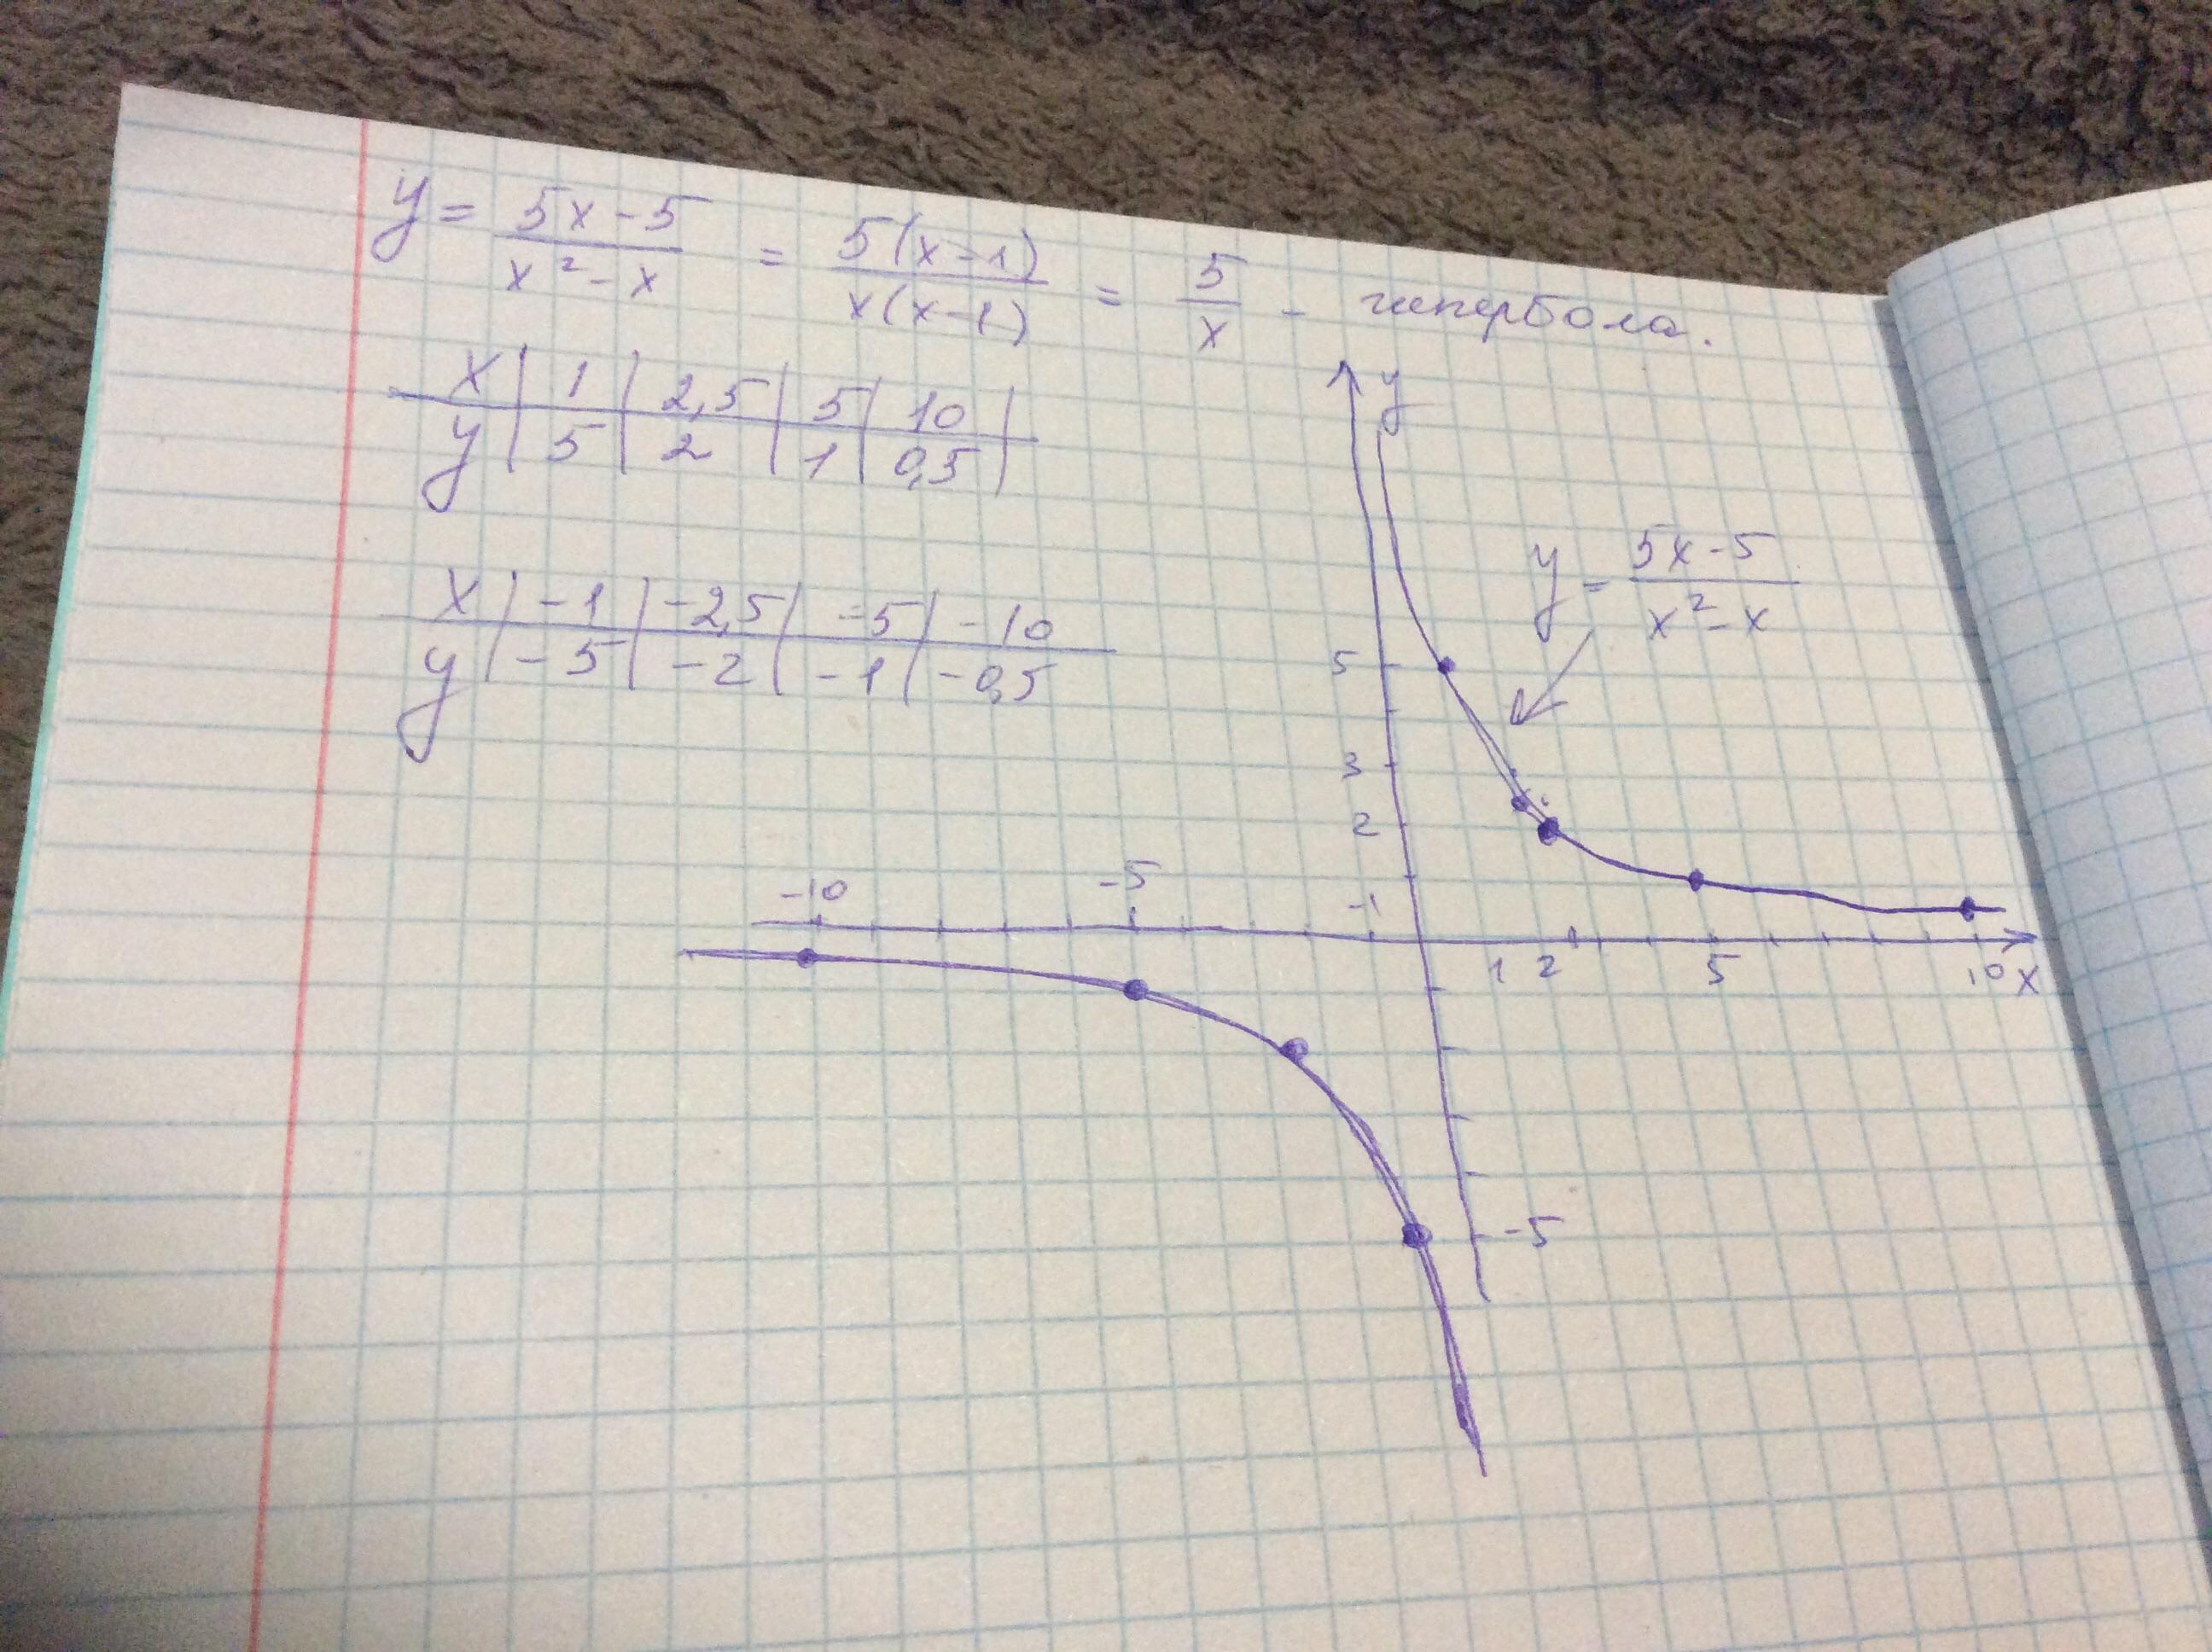 y = (5x-5)/(x²-x) = 5(x-1)/(x(x-1)) = 5/x - гипербола.
x | 1 | 2,5 | 5 | 10 |
y | 5 | 2 | 1 | 0,5 |
x | -1 | -2,5 | -5 | -10
y | -5 | -2 | -1 | -0,5
y
y = (5x-5)/(x²-x)
5
3
2
-10 -5 -1
1 2 5 10 x
-5